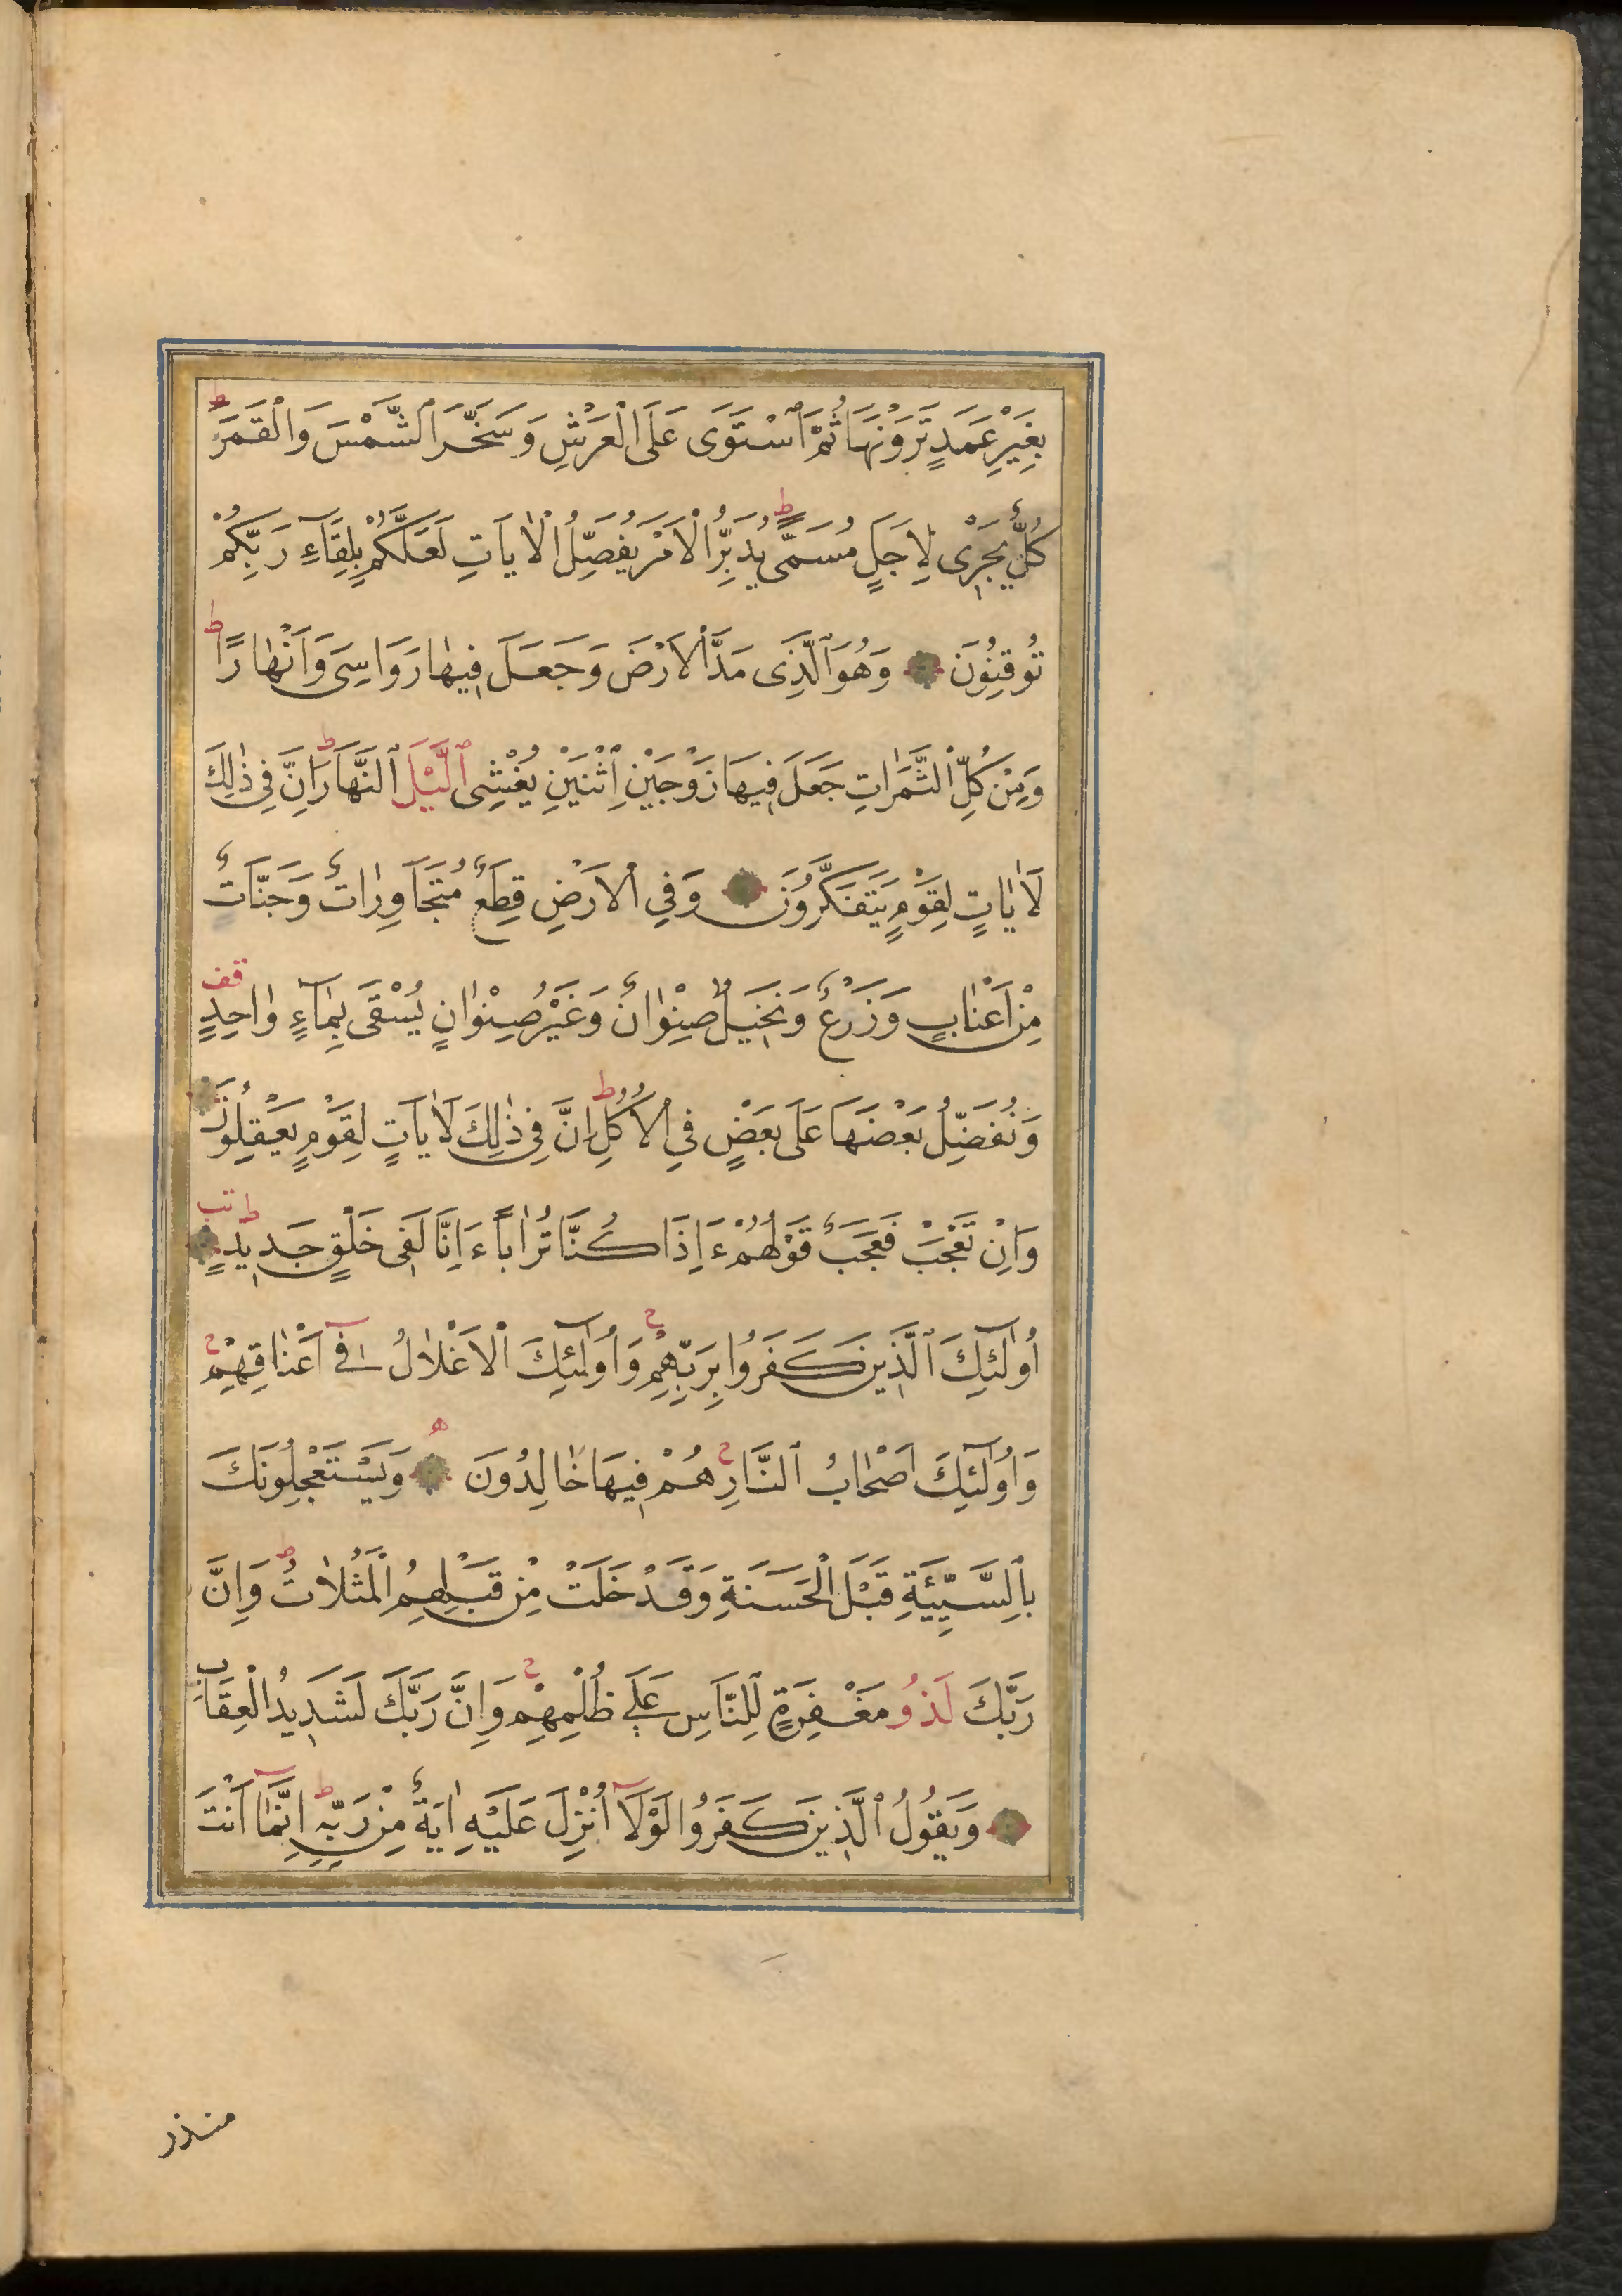 بِغَيْرِ عَمَدٍ تَرَوْنَهَا ثُمَّ ٱسْتَوَى عَلَى الْعَرْشِ وَسَخَّرَ ٱلشَّمْسَ وَالْقَمَرَ ط
كُلٌّ يَجْرِى لِاَجَلٍ مُسَمًّى ط يُدَبِّرُ الْاَمْرَ يُفَصِّلُ الْاٰيَاتِ لَعَلَّكُمْ بِلِقَآءِ رَبِّكُمْ
تُوقِنُونَ وَهُوَ ٱلَّذِى مَدَّ الْاَرْضَ وَجَعَلَ فِيهٰا رَوَاسِىَ وَاَنْهٰارًا ط
وَمِنْ كُلِّ الثَّمَرٰاتِ جَعَلَ فِيهَا زَوْجَيْنِ ٱثْنَيْنِ يُغْشِى ٱللَّيْلَ ٱلنَّهَارَ ط اِنَّ فِى ذٰلِكَ
لَاٰيٰاتٍ لِقَوْمٍ يَتَفَكَّرُونَ وَفِى الْاَرْضِ قِطَعٌ مُتَجَاوِرٰاتٌ وَجَنَّاتٌ
مِنْ اَعْنٰابٍ وَزَرْعٌ وَنَخِيلٌ صِنْوٰانٌ وَغَيْرُ صِنْوٰانٍ يُسْقَى بِمٰآءٍ وٰاحِدٍ قف
وَنُفَضِّلُ بَعْضَهَا عَلَى بَعْضٍ فِى الْاُكُلِ ط اِنَّ فِى ذٰلِكَ لَاٰيَاتٍ لِقَوْمٍ يَعْقِلُونَ
وَاِنْ تَعْجَبْ فَعَجَبٌ قَوْلُهُمْ ءَاِذَا كُنَّا تُرٰاباً ءَاِنَّا لَفِى خَلْقٍ جَدِيدٍ ط تب
اُولٰٓئِكَ ٱلَّذِينَ كَفَرُوا بِرَبِّهِمْ ج وَاُولٰٓئِكَ الْاَغْلٰالُ فِىٓ اَعْنٰاقِهِمْ ج
وَاُولٰٓئِكَ اَصْحٰابُ ٱلنَّارِ ج هُمْ فِيهَا خٰالِدُونَ ه وَيَسْتَعْجِلُونَكَ
بِٱلسَّيِّئَةِ قَبْلَ الْحَسَنَةِ وَقَدْ خَلَتْ مِنْ قَبْلِهِمُ الْمَثُلٰاتُ ط وَاِنَّ
رَبَّكَ لَذُو مَغْفِرَةٍ لِلنَّاسِ عَلٰى ظُلْمِهِمْ ج وَاِنَّ رَبَّكَ لَشَدِيدُ الْعِقَابِ
وَيَقُولُ ٱلَّذِينَ كَفَرُوا لَوْلَآ اُنْزِلَ عَلَيْهِ اٰيَةٌ مِنْ رَبِّهِ ط اِنَّمَآ اَنْتَ
منذر